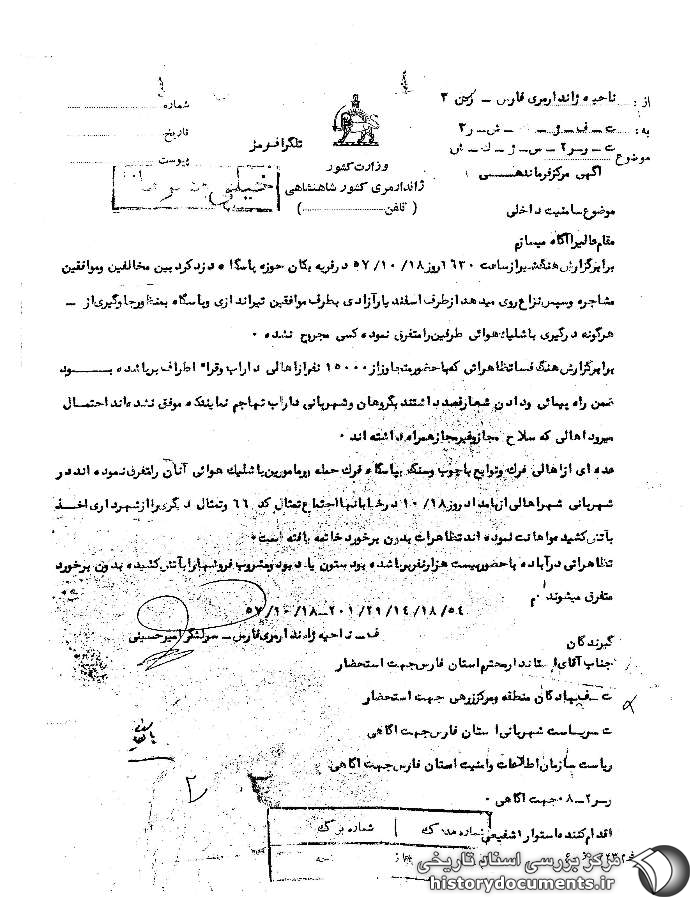 از : ناحیه ژاندارمری فارس ـ رکن ۳
به :
موضوع
آگهی مرکز فرماندهی
شماره
تاریخ
پیوست
تلگراف رمز
وزارت کشور
ژاندارمری کشور شاهنشاهی
( تلفن )
خیلی محرمانه
موضوع امنیت داخلی
مقام عالیرا آگاه میسازم
برابر گزارش هنگ شیراز ساعت ۱۶۳۰ روز ۱۸/ ۱۰/ ۵۷ در قریه بکان حوزه پاسگاه دزدکرد بین مخالفین وموافقین
مشاجره وسپس نزاع روی میدهد از طرف اسفندیار آزادی بطرف موافقین تیراندازی وپاسگاه بمنظور جلوگیری از ـ
هرگونه درگیری باشلیک هوائی طرفین را متفرق نموده کسی مجروح نشده ۰
برابر گزارش هنگ فسا تظاهراتی که با حضور متجاوز از ۱۵۰۰۰ نفر از اهالی داراب وقراء اطراف برپا شده بود
ضمن راه پیمائی ودادن شعار قصد داشتند بگروهان وشهربانی داراب تهاجم نمایند که موفق نشده اند احتمال
میرود اهالی که سلاح مجاز وغیر مجاز همراه داشته اند ۰
عده ای از اهالی فرک وتوابع باچوب وسنگ بپاسگاه فرک حمله ور مامورین باشلیک هوائی آنان را متفرق نموده اند در
شهربانی شهر اهالی از بامداد روز ۱۸/ ۱۰ در خیابانها اجتماع تمثال کد ۶۶ وتمثال دیگری را از شهرداری اخذ
بآتش کشیده و اهانت نموده اند تظاهرات بدون برخورد خاتمه یافته است ۰
تظاهراتی در آباده با حضور بیست هزار نفر برپا شده بود ستون یاد بود ومشروب فروشیها را بآتش کشیده بدون برخورد
متفرق میشوند م
۵۴/ ۱۸/ ۱۴/ ۲۹/ ۲۰۱ـ ۱۸/ ۱۰/ ۵۷
ف ـ ناحیه ژاندارمری فارس ـ سرلشگر امیرحسینی
گیرندگان
جناب آقای استاندار محترم استان فارس جهت استحضار
ت ـ فرماندهان منطقه ومرکز زرهی جهت استحضار
ت ـ ریاست شهربانی استان فارس جهت آگاهی
ریاست سازمان اطلاعات وامنیت استان فارس جهت آگاهی
رسر۲ ـ ۰۸ جهت آگاهی ۰
اقدام کننده استوار اشفیعی
شماره مدرک
شماره برگ
۲
مرکز بررسی اسناد تاریخی
historydocuments.ir